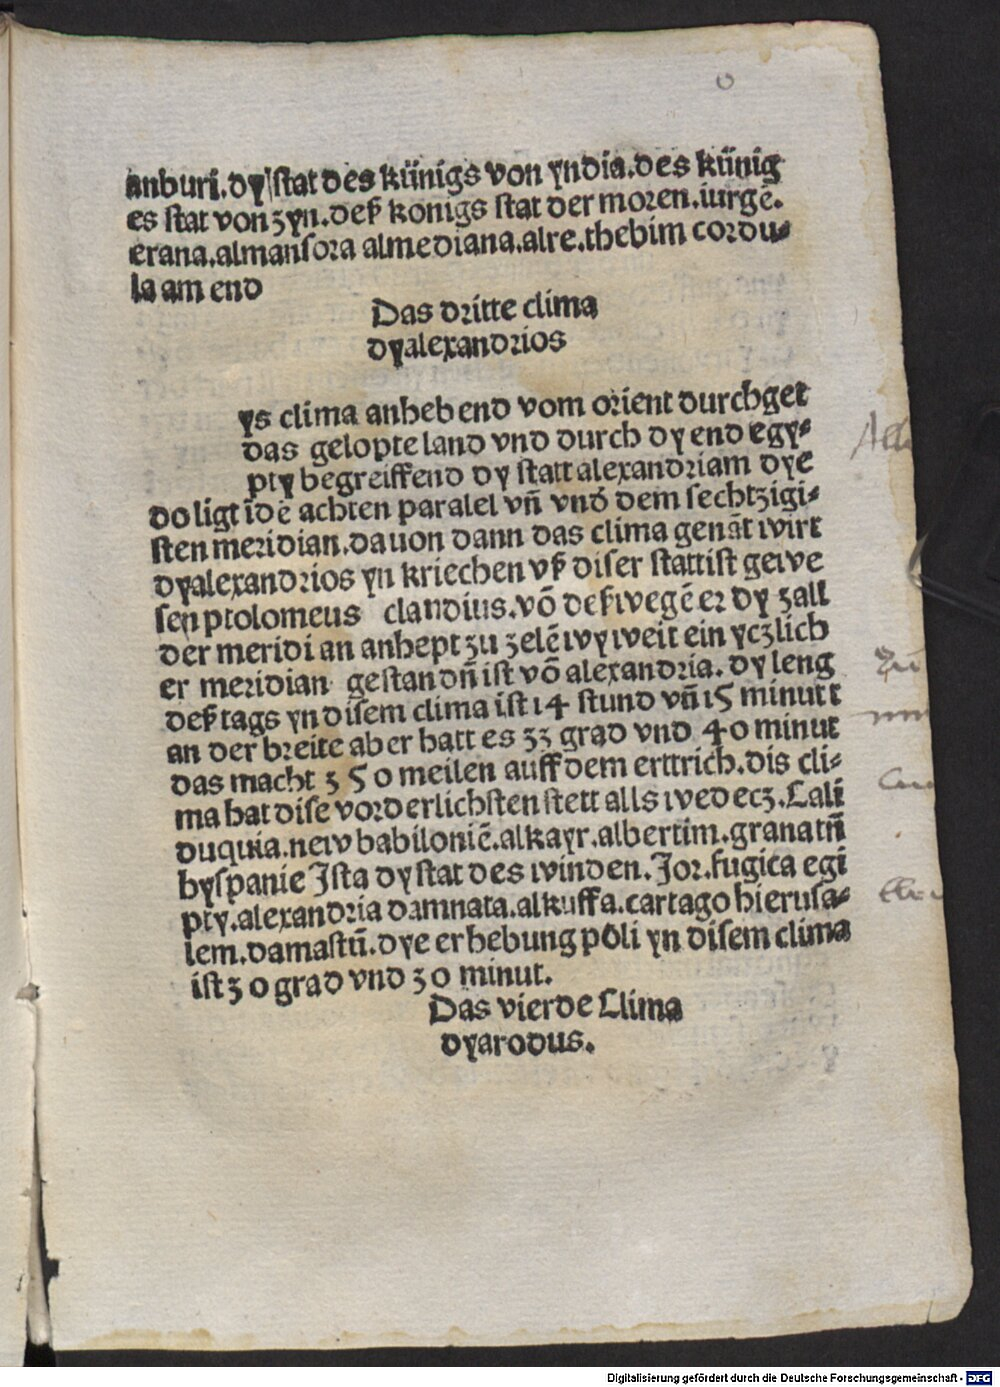 anburi.dy stat des künigs von yndia.des künig
es stat von zyn.deß konigs stat der moren.iurgē.
erana.almansora almediana.alre.thebim cordu⸗
la am end
Das dritte clima
dyalexandrios
ys clima anhebend vom orient durchget
das gelopte land vnd durch dy end egy⸗
pty begreiffend dy statt alexandriam dye
do ligt īdē achten paralel vn̄ vnd dem sechtzigi⸗
sten meridian.dauon dann das clima genāt wirt
dyalexandrios yn kriechen vß diser statt ist gewe
sen ptolomeus clandius.vō deß wegē er dy zall
der meridian anhept zu zelē wy weit ein yczlich
er meridian gestandn̄ ist vō alexandria. dy leng
deß tags yn disem clima ist 14 stund vn̄ 15 minutt
an der breite aber hatt es 33 grad vnd 40 minut
das macht 350 meilen auff dem erttrich.dis cli⸗
ma hat dise vorderlichsten stett alls wedecz.Lali
duquia.new babiloniē.alkayr.albertim.granatn̄
hyspanie Ista dy stat des winden.Jor.fugica egi
pty.alexandria damnata.alkuffa.cartago hierusa⸗
lem.damastū.dye erhebung poli yn disem clima
ist 30 grad vnd 30 minut.
Das vierde Clima
dyarodus.
Digitalisierung gefördert durch die Deutsche Forschungsgemeinschaft - DFG